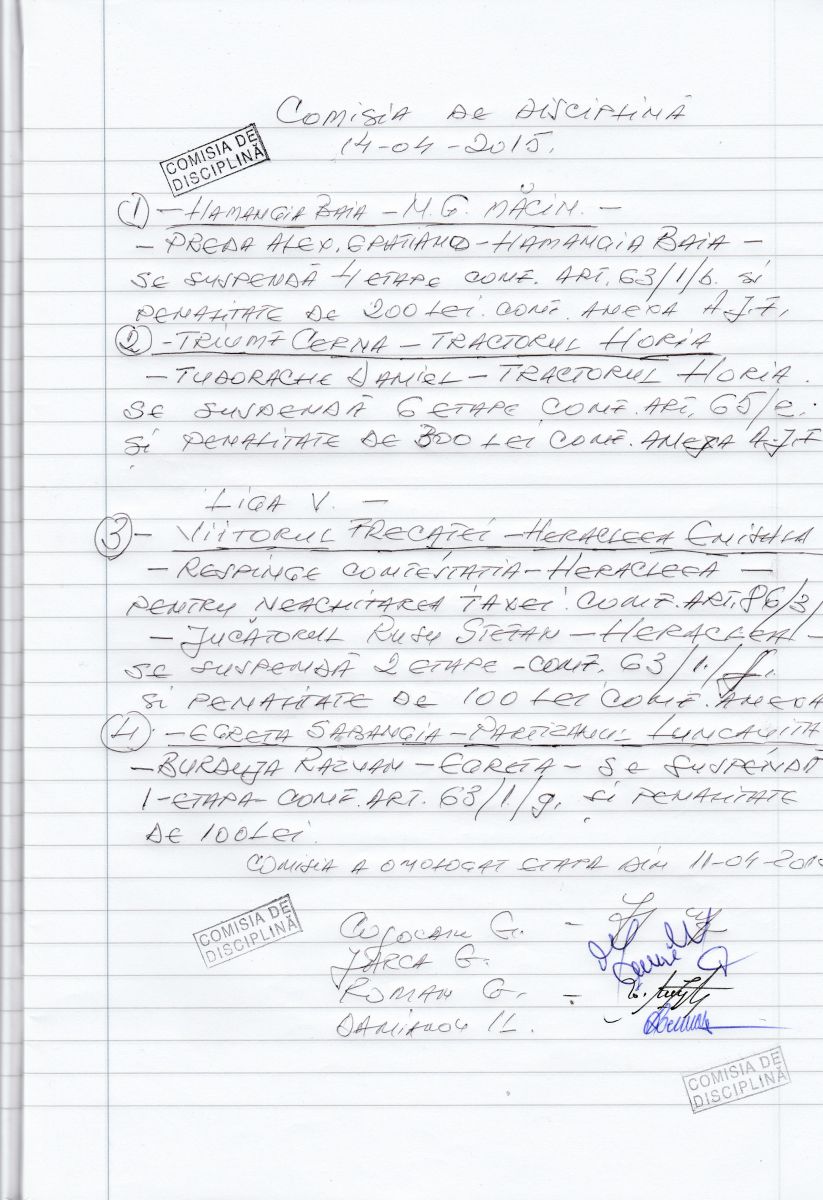 COMISIA DE DISCIPLINĂ
14-04-2015.
COMISIA DE
DISCIPLINĂ
① - HAMANGIA BAIA - M.G. MĂCIN. -
- PREDA ALEX. GRATIANO - HAMANGIA BAIA -
SE SUSPENDĂ 4 ETAPE CONF. ART. 63/1/b. SI
PENALITATE DE 200 LEI. CONF. ANEXA A.J.F.
② - TRIUMF CERNA - TRACTORUL HORIA
- TUDORACHE DANIEL - TRACTORUL HORIA.
SE SUSPENDĂ 6 ETAPE CONF. ART. 65/e.
SI PENALITATE DE 300 LEI CONF. ANEXA A.J.F
LIGA V. -
③ - VIITORUL FRECAȚEI - HERACLEEA ENISALA
- RESPINGE CONTESTATIA - HERACLEEA -
PENTRU NEACHITAREA TAXEI. CONF. ART. 86/3/
- JUCĂTORUL RUSU STEFAN - HERACLEEA -
SE SUSPENDĂ 2 ETAPE - CONF. 63/1/f.
SI PENALITATE DE 100 LEI CONF. ANEXA
④. - EGRETA SABANGIA - PARTIZANUL LUNCAVITA
- BURDUJA RAZVAN - EGRETA - SE SUSPENDĂ
1-ETAPA- CONF. ART. 63/1/g. SI PENALITATE
DE 100 LEI.
COMISIA A OMOLOGAT ETAPA DIN 11-04-2015
COMISIA DE
DISCIPLINĂ
COJOCARU G. -
JARCA G.
ROMAN G. -
DAMIANOV IL. -
COMISIA DE
DISCIPLINĂ